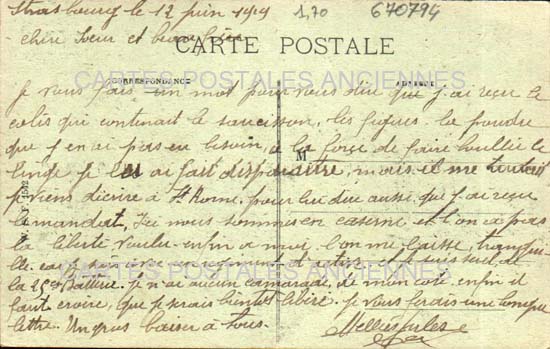 Strasbourg le 12 juin 1919
1,70
670794
chère Soeur et beau frère
CARTE POSTALE
CARTES POSTALES ANCIENNES
CORRESPONDANCE
ADRESSE
je vous fais un mot pour vous dire que j'ai reçu le
colis qui contenait le saucisson, les figues la poudre
que j'en ai pas eu besoin, à la force de faire bouillir le
M
linge je les ai fait disparaître, mais il me
je viens d'écrire à St Rome, pour lui dire aussi que j'ai reçu
le mandat, Ici nous sommes en caserne et l'on a pas
la liberté voulu enfin a moi l'on me laisse tranqui-
lle car je suis et je suis seul de
CARTES POSTALES ANCIENNES
la 25e Batterie je n'ai aucun camarade, de mon coté enfin il
faut croire, que je serais bientot libéré je vous ferais une longue
lettre. Un gros baiser à tous.
Jules